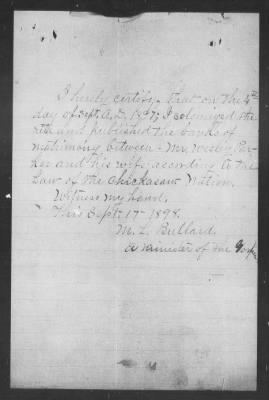 I hereby certify that on the 4th
day of Sept. A.D. 1897, I solemnized the
rites and published the bands of
matrimony between - Mr. Wesley Par-
ker and his wife, according to the
Law of the Chickasaw Nation.
Witness my hand,
This Sept. 17 - 1898.
M. L. Bullard.
a minister of the Gospe